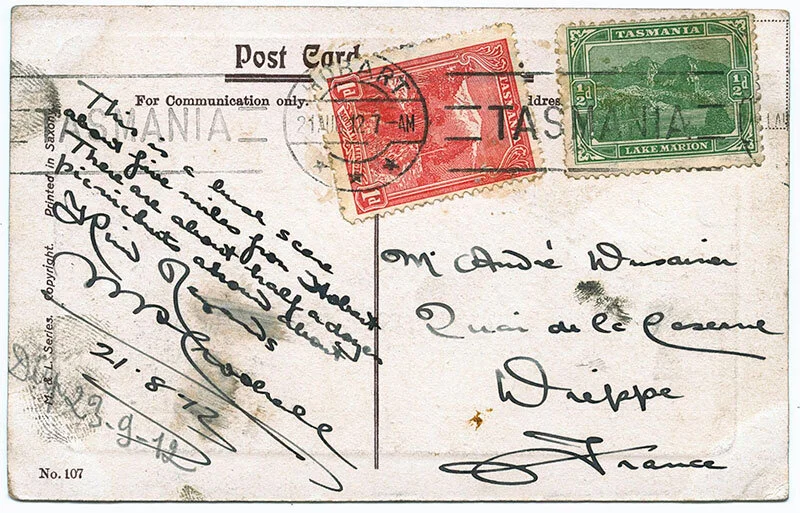 Post Card
For Communication only.
Addres
TASMANIA
HOBART
21 AU 12.7-AM
TASMANIA
1d
1d
TASMAN
TASMANIA
½d
½d
LAKE MARION
This is a bush scene
about five miles from Hobart
There are about half a dozen
picnickers about about
Kind Regards
21.8.12
23-9-12
Mr André Dusanier
Quai de la Caserne
Dieppe
France
M. & L. Series. Copyright. Printed in Saxony
No. 107